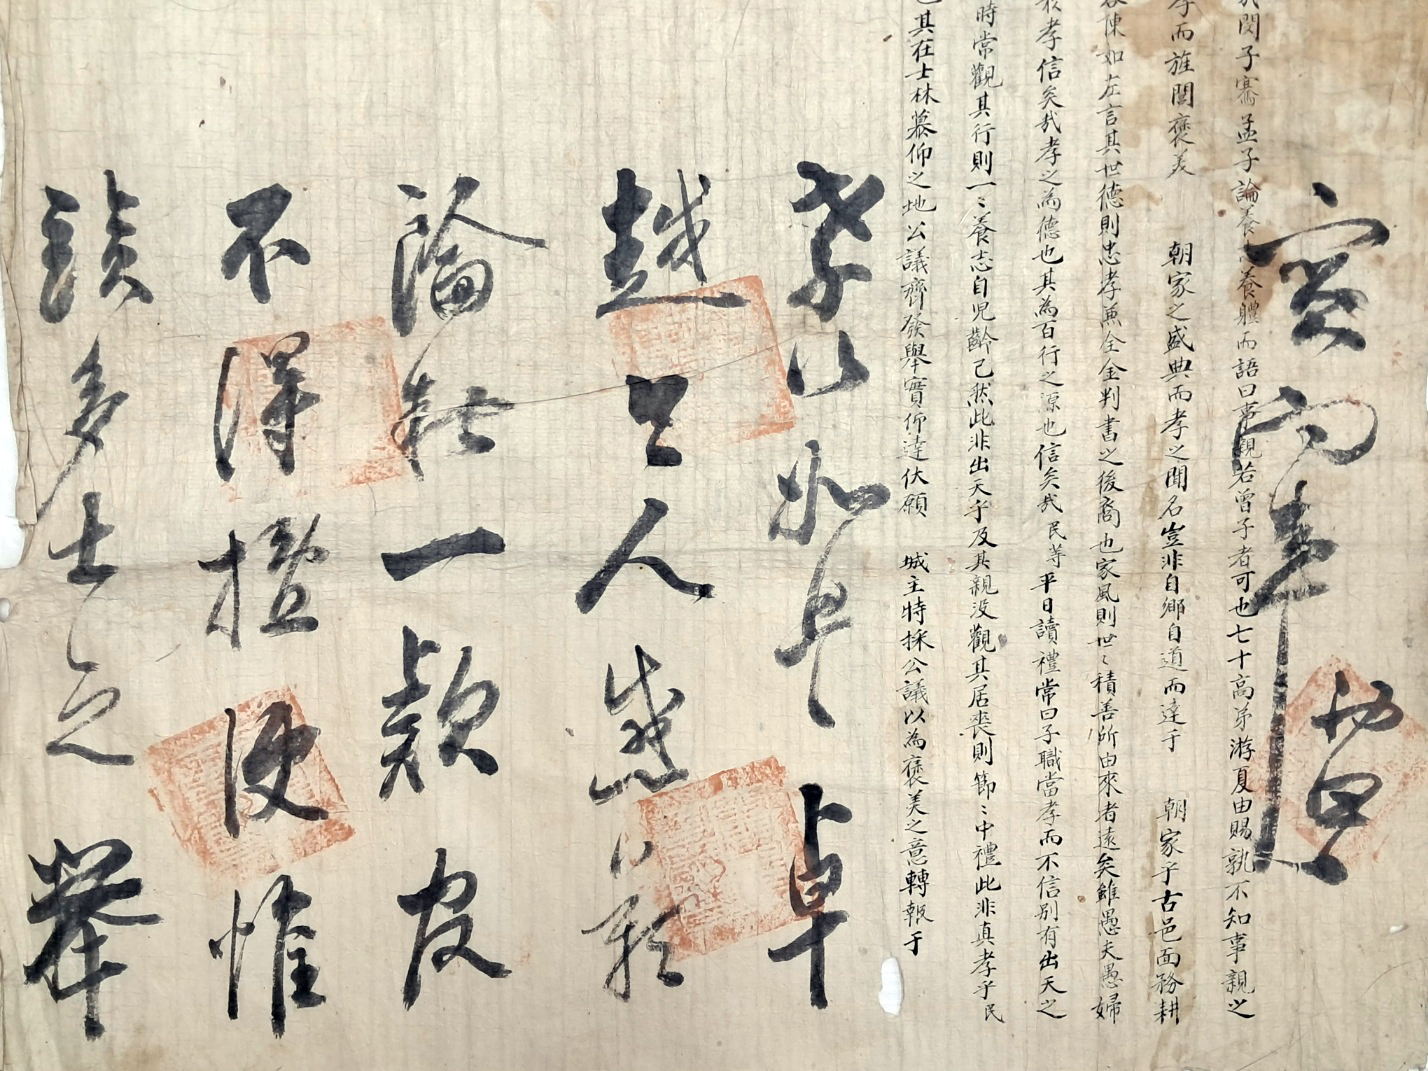 閔子騫孟子論養志養體而語曰事親若曾子者可也七十高弟游夏由賜孰不知事親之
孝而旌閭褒美 朝家之盛典而孝之聞名豈非自鄕自道而達于 朝家乎古邑面務耕
陳如左言其世德則忠孝兼全全判書之後裔也家風則世〻積善所由來者遠矣雖愚夫愚婦
孝信矣哉孝之為德也其為百行之源也信矣哉民等平日讀禮常曰子職當孝而不信別有出天之
時常觀其行則一〻養志自兒齡已然此非出天乎及其親没觀其居喪則節〻中禮此非真孝乎民
其在士林慕仰之地公議齊發擧實仰達伏願 城主特採公議以為褒美之意轉報于
孝以如此卓
越令人感歎
論報一款官
不得擅便惟
談多士之擧